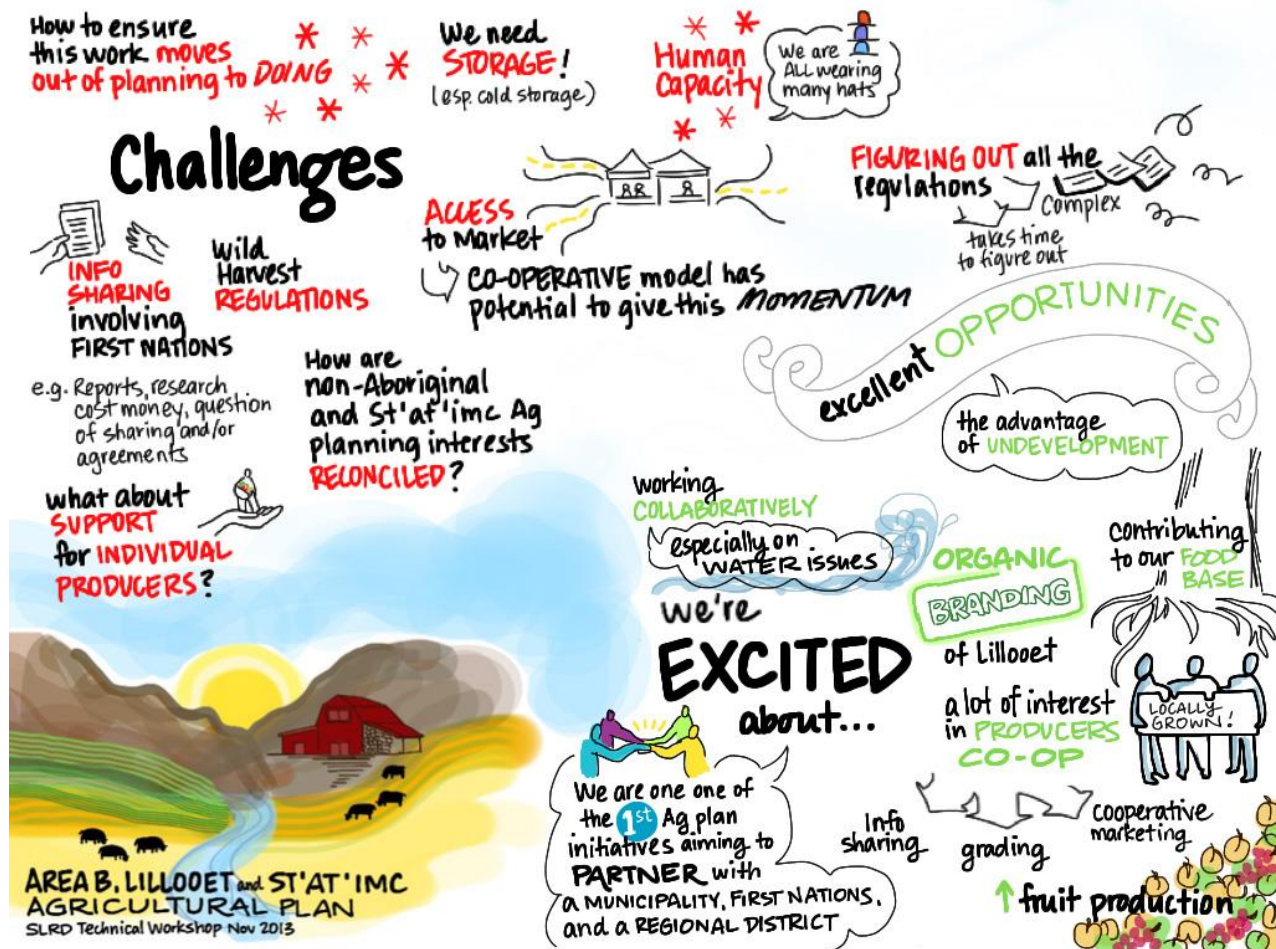 How to ensure
this work moves
out of planning to DOING
We need
STORAGE!
(esp. cold storage)
Human
Capacity
We are
ALL wearing
many hats
Challenges
FIGURING OUT all the
regulations
Complex
takes time
to figure out
ACCESS
to Market
CO-OPERATIVE model has
potential to give this MOMENTUM
INFO
SHARING
involving
FIRST NATIONS
e.g. Reports, research
cost money, question
of sharing and/or
agreements
Wild
Harvest
REGULATIONS
How are
non-Aboriginal
and St'at'imc Ag
planning interests
RECONCILED?
what about
SUPPORT
for INDIVIDUAL
PRODUCERS?
excellent OPPORTUNITIES
the advantage
of UNDEVELOPMENT
working
COLLABORATIVELY
especially on
WATER issues
contributing
to our FOOD
BASE
ORGANIC
BRANDING
of Lillooet
we're
EXCITED
about...
a lot of interest
in PRODUCERS
CO-OP
LOCALLY
GROWN!
Info
sharing
grading
Cooperative
marketing
↑ fruit production
We are one one of
the 1st Ag plan
initiatives aiming to
PARTNER with
a MUNICIPALITY, FIRST NATIONS,
and a REGIONAL DISTRICT
AREA B, LILLOOET and ST'AT'IMC
AGRICULTURAL PLAN
SLRD Technical Workshop Nov 2013